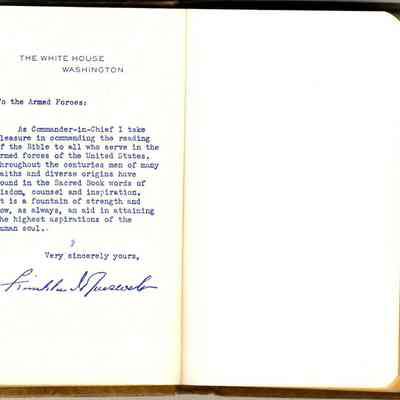 THE WHITE HOUSE
WASHINGTON
To the Armed Forces:
As Commander-in-Chief I take
leasure in commending the reading
f the Bible to all who serve in the
rmed forces of the United States.
hroughout the centuries men of many
aiths and diverse origins have
ound in the Sacred Book words of
isdom, counsel and inspiration.
t is a fountain of strength and
ow, as always, an aid in attaining
he highest aspirations of the
uman soul.
Very sincerely yours,
Franklin D Roosevelt